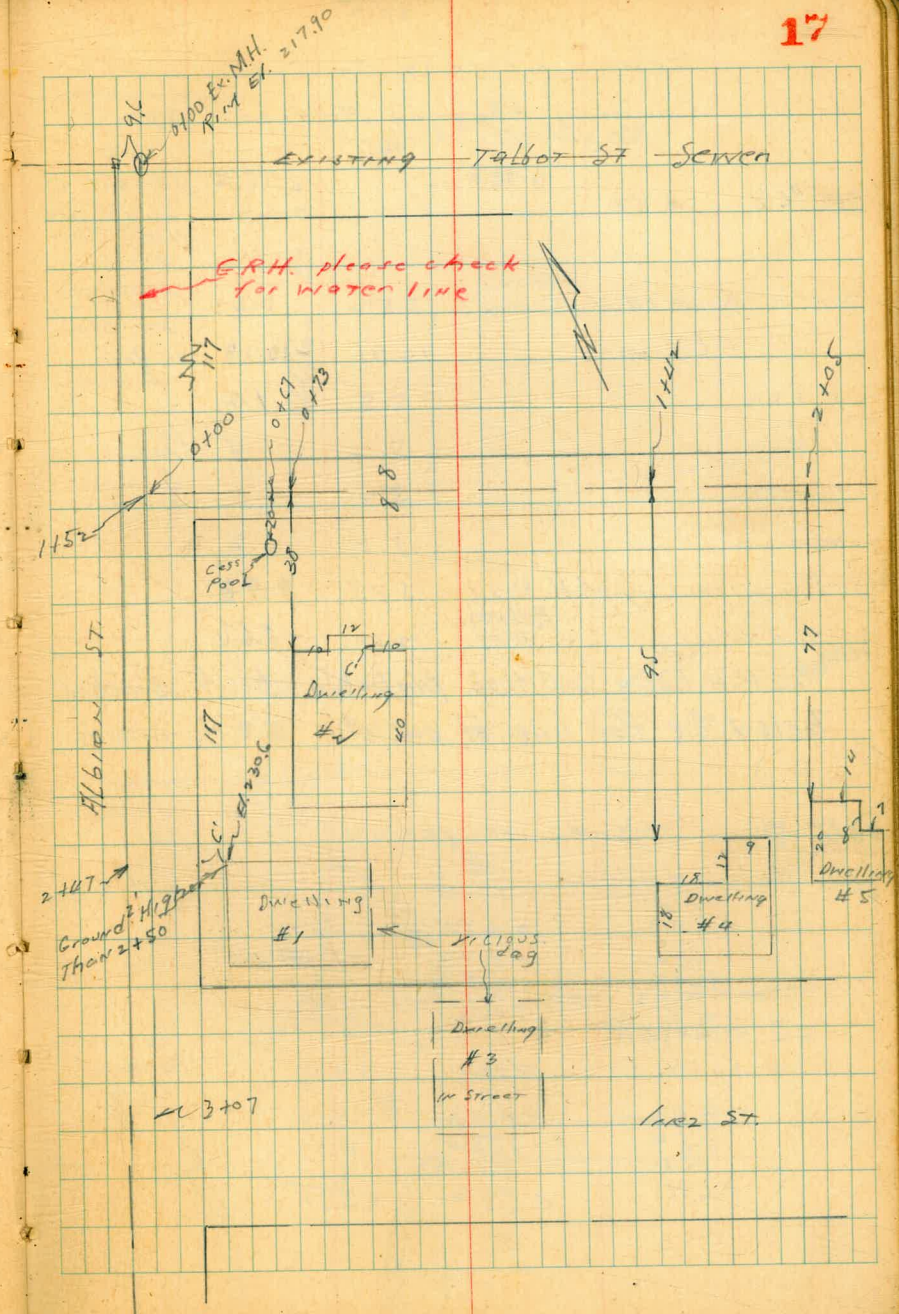 17
9.6
0+00 Ex. M.H.
Rim El. 217.90
Existing Talbot St Sewer
E.R.H. please check
for water line
117
0+00
0+67
0+73
1+42
2+05
8
8
1+52
20
Cess
Pool
38
95
77
Albion St.
117
10
12
10
6'
Dwelling
#2
40
6'
El. 230.6
2+47
Ground 2' Higher
Than 2+50
Dwelling
#1
Vicious
dog
9
12
18
18
Dwelling
#4
14
7
8
20
Dwelling
#5
Dwelling
#3
In Street
3+07
Inez St.